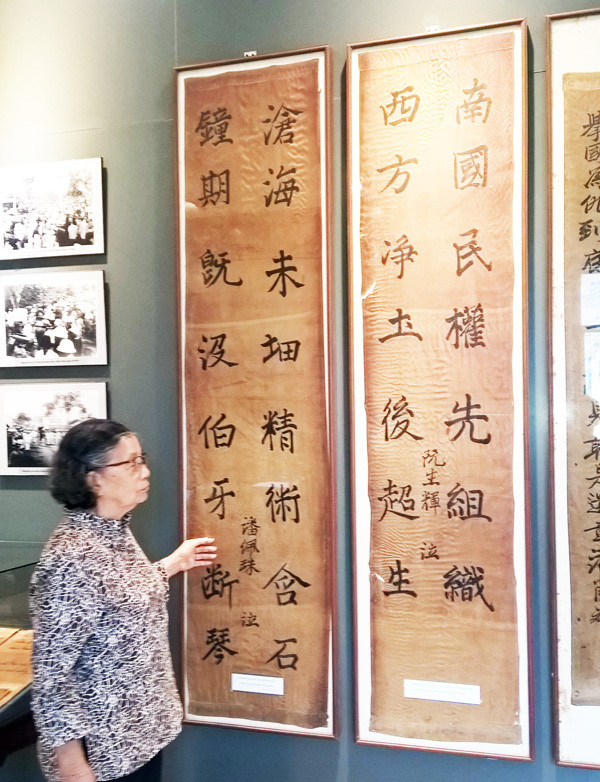 舉國為仇到
南國民權先組織
西方净土後超生
阮生輝 泣
滄海未精術含石
鐘期既没伯牙断琴
潘佩珠 泣